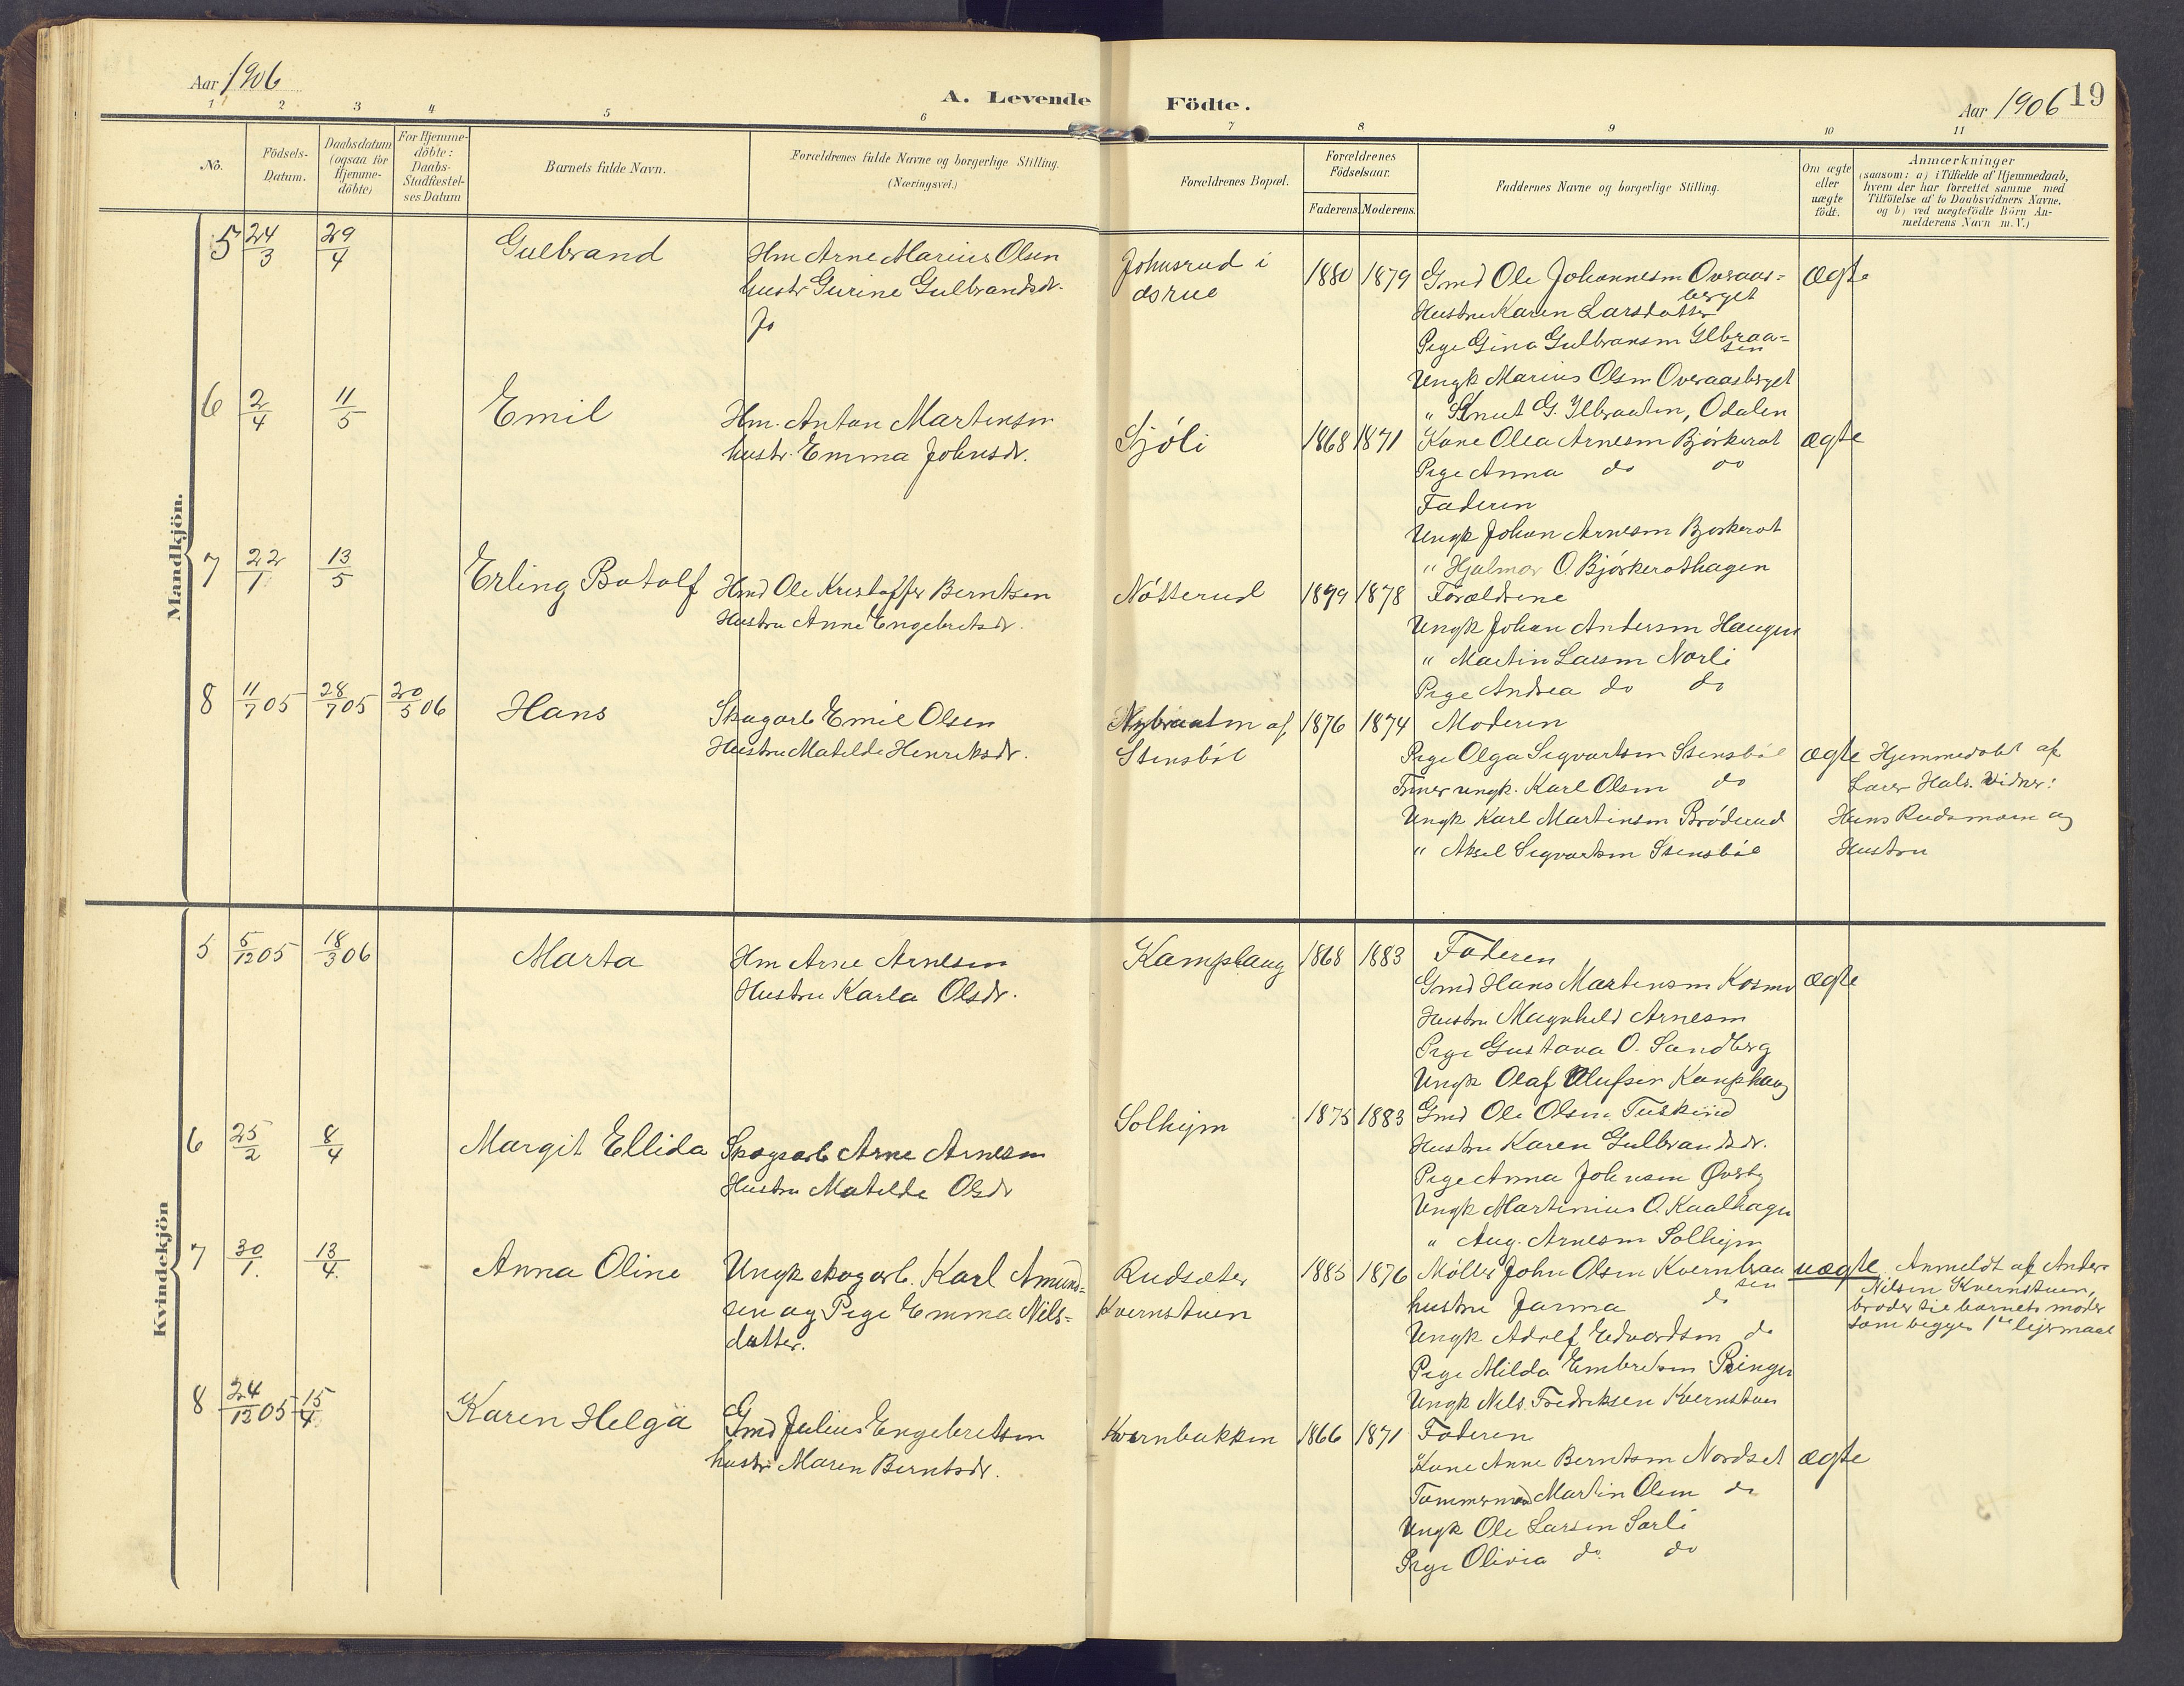 Aar 1906
A. Levende Födte.
Aar 1906 19
1 2 3 4 5 6 7 8 9 10 11
No.
Födsels-Datum.
Daabsdatum (ogsaa for Hjemme-döbte)
For Hjemme-döbte: Daabs-Stadfæstel-ses Datum
Barnets fulde Navn.
Forældrenes fulde Navne og borgerlige Stilling. (Næringsvei.)
Forældrenes Bopæl.
Forældrenes Födselsaar.
Faderens. Moderens.
Faddernes Navne og borgerlige Stilling.
Om ægte eller uægte födt.
Anmærkninger
(saasom: a) i Tilfælde af Hjemmedaab,
hvem der har forrettet samme med
Tilföielse af to Daabsvidners Navne.
og b) ved uægtefödte Börn An-
melderens Navn m.V.)
Mandkjön.
5 24/3 29/4 Gulbrand
Hm Arne Marius Olsen
hustr Gurine Gulbrandsdr.
Jo
Johnsrud i
1880 1879
Gmd Ole Johannesen Overaas=
berget
Hustru Karen Larsdatter
Pige Gina Gulbransen Ilbraa=
ten
Ungk Marius Olsen Overaasberget
" Knut G. Ilbraaten, Odalen
ægte
6 2/4 11/5 Emil
Hm. Anton Martinsen
hustr. Emma Johnsdr.
Sjöli
1868 1871
Kone Olea Arnesen Björkerot
Pige Anna do do
Faderen
Ungk Johan Arnesen Bjorkerot
" Hjalmar O. Björkerothagen
ægte
7 22/1 13/5 Erling Botolf
Hmd Ole Kristoffer Berntsen
Hustru Anne Engebretsdr.
Nötterud
1899 1878
Forældrene
Ungk Johan Andersen Haugen
" Martin Larsen Norli
Pige Andrea do do
8 11/7 05 28/7 05 20/5 06 Hans
Skogarb Emil Olsen
Hustru Matilde Henriksdr.
Nybraaten af
Stensböl
1876 1874
Moderen
Pige Olga Sigvartsen Stensböl
ungk. Karl Olsen do
Ungk Karl Martinsen Brödsund
" Aksel Sigvartsen Stensböl
ægte
Hjemmedöbt af
Lærer Hals. Vidner:
Hans Rudsmoen og
Hustru
Kvindekjön
5 5/12 05 18/3 06 Marta
Hm Arne Arnesen
Hustru Karla Olsdr.
Kamphaug
1868 1883
Faderen
Gmd Hans Martinsen Kosmo
Hustru Magnhild Arnesen
Pige Gustava O. Sandberg
Ungk Olaf Olufsen Kamphaug
ægte
6 25/2 8/4 Margit Ellida
Skogsarb Arne Arnesen
Hustru Matilde Olsdr
Solhejm
1875 1883
Gmd Ole Olsen Tuskind
Hustru Karen Gulbrandsdr.
Pige Anna Johnsen Øverby
Ungk Martinius O. Kaalhagen
" Aug. Arnesen Solhejm
7 30/1. 13/4. Anna Oline
Ungk skogarb. Karl Amund=
sen og Pige Emma Nils=
datter.
Rudsæter
Kvernstuen
1885 1876
Möller John Olsen Kvernbraa
ten
hustru Janna do
Ungk Adolf Edvardsen do
Pige Milda Embretsen Ringen
Ungk Nils Fredriksen Kvernstuen
uægte
Anmeldt af Anders
Nilsen Kvernstuen,
broder til barnets moder
som begges 1te lejermaal
8 24/12 05 15/4 Karen Helga
Gmd Julius Engebretsen
hustr Maren Berntsdr.
Kvernbakken
1866 1871
Faderen
Kone Anne Berntsen Nordset
Tømmermd Martin Olsen do
Ungk Ole Larsen Sørli
Pige Olivia do do
ægte